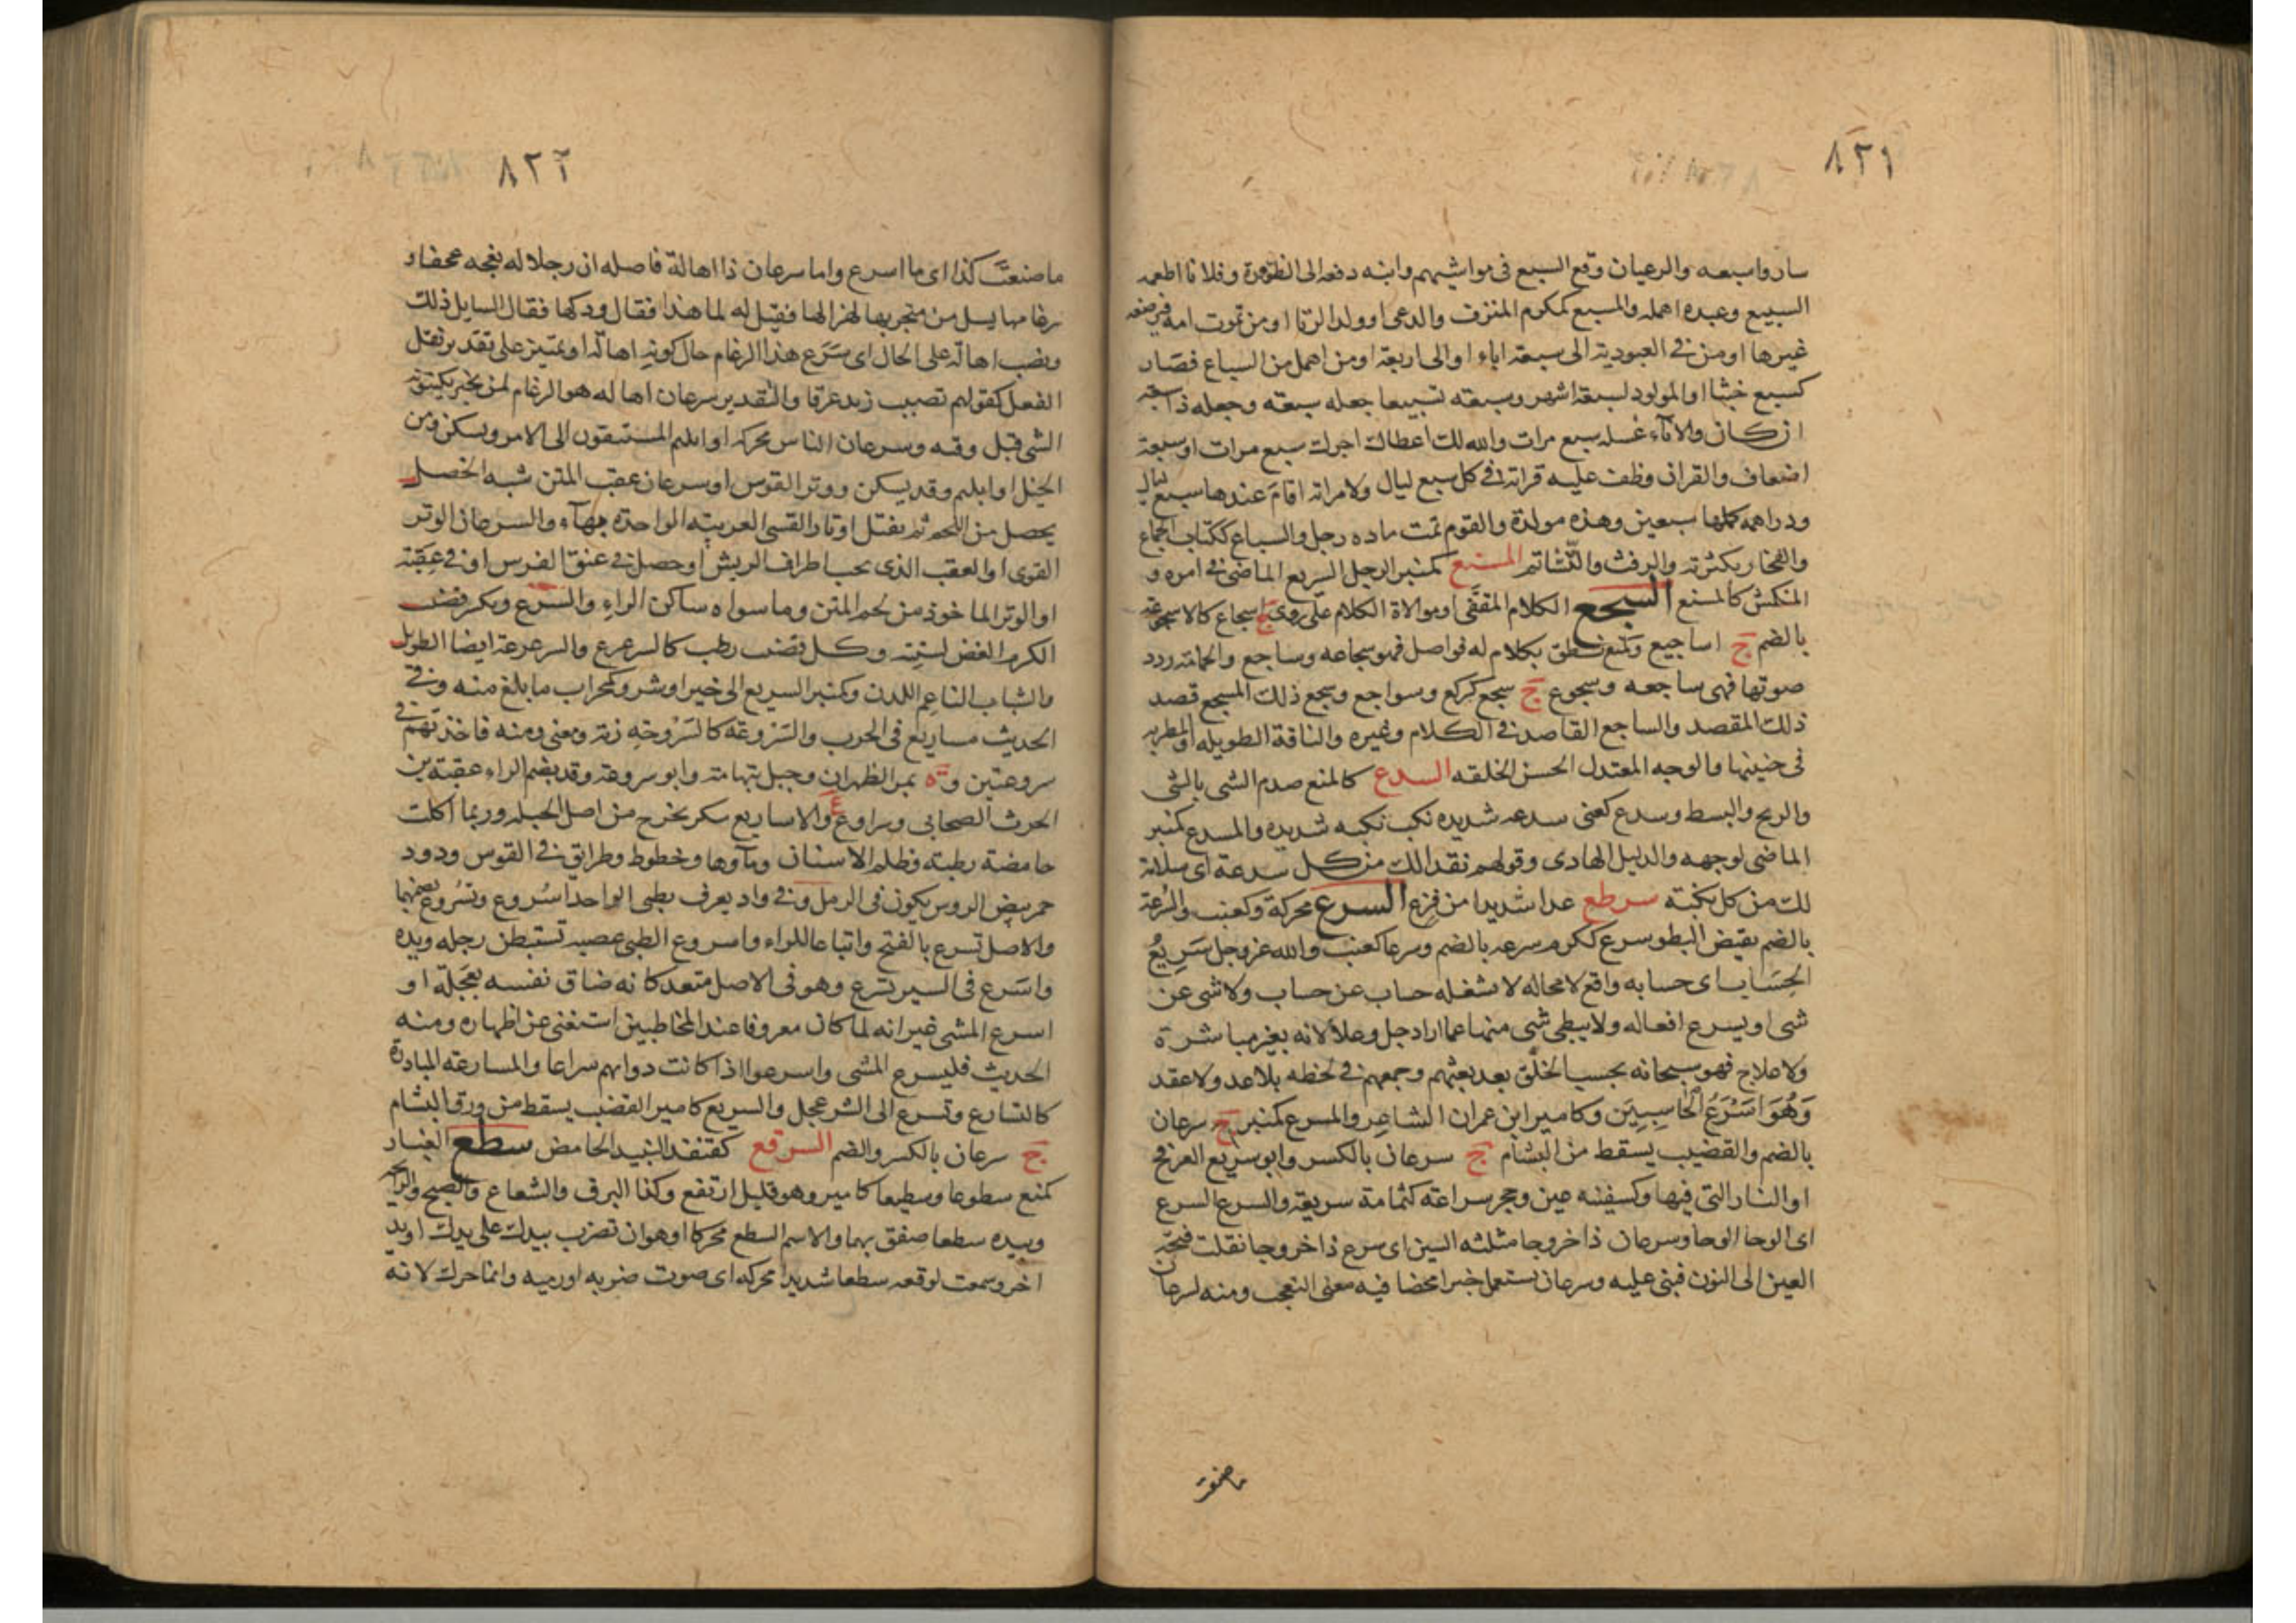 ٨٢١
ساروا سبعه والرعيان وقع السبع فى مواشيهم وابنه دفعه الى الظؤرة وفلانا اطعمه
السبيع وعبده اهمله والمسبع كمكرم المترف والدعى او ولد الزنا او من تموت امه فيرضعه
غيرها او من فى العبودية الى سبعة اباء او الى اربعة او من اهمل من السباع فصار
كسبع خبثا او المولود لسبعة اشهر وسبعته تسبيعا جعله سبعه وجعله ذا سبعة
اركان والاناء غسله سبع مرات والله لك اعطاك اجرك سبع مرات او سبعة
اضعاف والقران وظف عليه قراته فى كل سبع ليال ولامراته اقام عندها سبع ليال
ودراهمه كملها سبعين وهذه مولدة والقوم تمت ماده رجل والسباع ككتاب الجماع
والفخار بكثرته والرفث والتشاتم المستع كمنبر الرجل السريع الماضى فى امره و
المنكمش كالمسنع السجع الكلام المقفى او موالاة الكلام على روى ج اسجاع كالاسجوعة
بالضم ج اساجيع وكمنع نطق بكلام له فواصل فهو سجاعه وساجع والحمامة ردد
صوتها فهى ساجعه وسجوع ج سجع كركع وسواجع وسجع ذلك المسجع قصد
ذلك المقصد والساجع القاصد فى الكلام وغيره والناقة الطويله او المطربه
فى حنينها والوجه المعتدل الحسن الخلقه السدع كالمنع صدم الشى بالشى
والربح والبسط وسدع كعنى سدعه شديده نكب نكبه شديده والمسدع كمنبر
الماضى لوجهه والدليل الهادى وقولهم نقدا لك من كل سدعة اى سلامة
لك من كل نكبة سرطع عدا شديدا من فزع السرع محركة وكعنب والسرعة
بالضم نقيض البطو سرع ككرم سرعه بالضم وسرعا كعنب والله عز وجل سَرِيعُ
الحِسَاب اى حسابه واقع لا محاله لا شغله حساب عن حساب ولا شى عن
شى او يسرع افعاله ولا يبطى شى منها عما اراد جل وعلا لانه بغير مباشرة
ولا علاج فهو سبحانه يحسب الخلق بعد بعثهم وجمعهم فى لحظه بلا عد ولا عقد
وَهُوَ اَسْرَعُ الْحَاسِبِينَ وكامير ابن عمران الشاعر والمسرع كمنبر ج سرعان
بالضم والقضيب يسقط من البشام ج سرعان بالكسر وابو سريع العرفج
او النار التى فيها وكسفينه عين وحجر سراعة كثمامة سريعة والسرع السرع
اى الوحا الوحا وسرعان ذا خروجا مثلثه السين اى سرع ذا خروجا نقلت فتحة
العين الى النون فبنى عليه وسرعان يستعمل خبرا محضا فيه معنى التعجب ومنه لسرعان
ما صنعت
٨٢٢
ما صنعتَ كذا اى ما اسرع واما سرعان ذا اهالة فاصله ان رجلا له نعجه عجفاء و
رغامها يسيل من منخريها لهزالها فقيل له لما هذا فقال ودكها فقال السايل ذلك
ونصب اهالة على الحال اى سَرَع هذا الرغام حال كونه اهالة او تميز على تقدير نقل
الفعل كقولهم تصبب زيد عرقا والتقدير سرعان اهاله هو الرغام لمن يخبر بكينونة
الشى قبل وقته وسرعان الناس محركه اوائلهم المستبقون الى الامر ويسكن ومن
الخيل اوايلهم وقد يسكن ووتر القوس او سرعان عقب المتن شبه الخصل
يحصل من اللحم ثم يفتل اوتارا للقسى العربيه الواحده بهاء والسرعان الوتر
القوى او العقب الذى يجب اطراف الريش او خصل فى عنق الفرس او فى عقبة
او الوتر الماخوذ من لحم المتن وما سواه ساكن الراء والسرع ويكسر قضب
الكرم الغض لسنته وكل قضب رطب كالسرعرع والسرعرعة ايضا الطويل
والشاب الناعم اللدن وكمنبر السريع الى خير او شر وكمحراب ما بلغ منه وفى
الحديث مساريع فى الحرب والسروعة كالسروحه زنة ومعنى ومنه فاخذ بهم فى
سروعتين وة بمر الظهران وجبل بتهامة وابو سروعة وقد بضم الراء عقبة بن
الحرث الصحابى وسراوع ع والاساريع سكر يخرج من اصل الحبلة وربما اكلت
حامضة رطبة وظلم الاسنان وماؤها وخطوط وطرايق فى القوس ودود
حمر بيض الروس يكون فى الرمل وفى واد يعرف بظبى الواحد اسروع ويسروع بضمهما
والاصل تسرع بالفتح واتباعا للراء واسروع الظبى عصبه تستبطن رجله ويده
واسرع فى السير تسرع وهو فى الاصل متعد كانه ضاق نفسه بعجلة او
اسرع المشى غير انه لما كان معروفا عند المخاطبين استغنى عن اظهاره ومنه
الحديث فليسرع المشى واسرعوا اذا كانت دوابهم سراعا والمسارعه المبادرة
كالتسارع وتسرع الى الشر عجل والسريع كامير القضيب يسقط من ورق البشام
ج سرعان بالكسر والضم السرقع كقنفذ النبيد الحامض سطع الغبار
كمنع سطوعا وسطيعا كامير وهو قليل ارتفع وكذا البرق والشعاع والصبح والرايحه
وبيده سطعا صفق بهما والاسم السطع محركا او هو ان تضرب بيدك على يدك او يد
اخر وسمعت لوقعه سطعا شديدا محركه اى صوت ضربه او رميه وانما حرك لانه